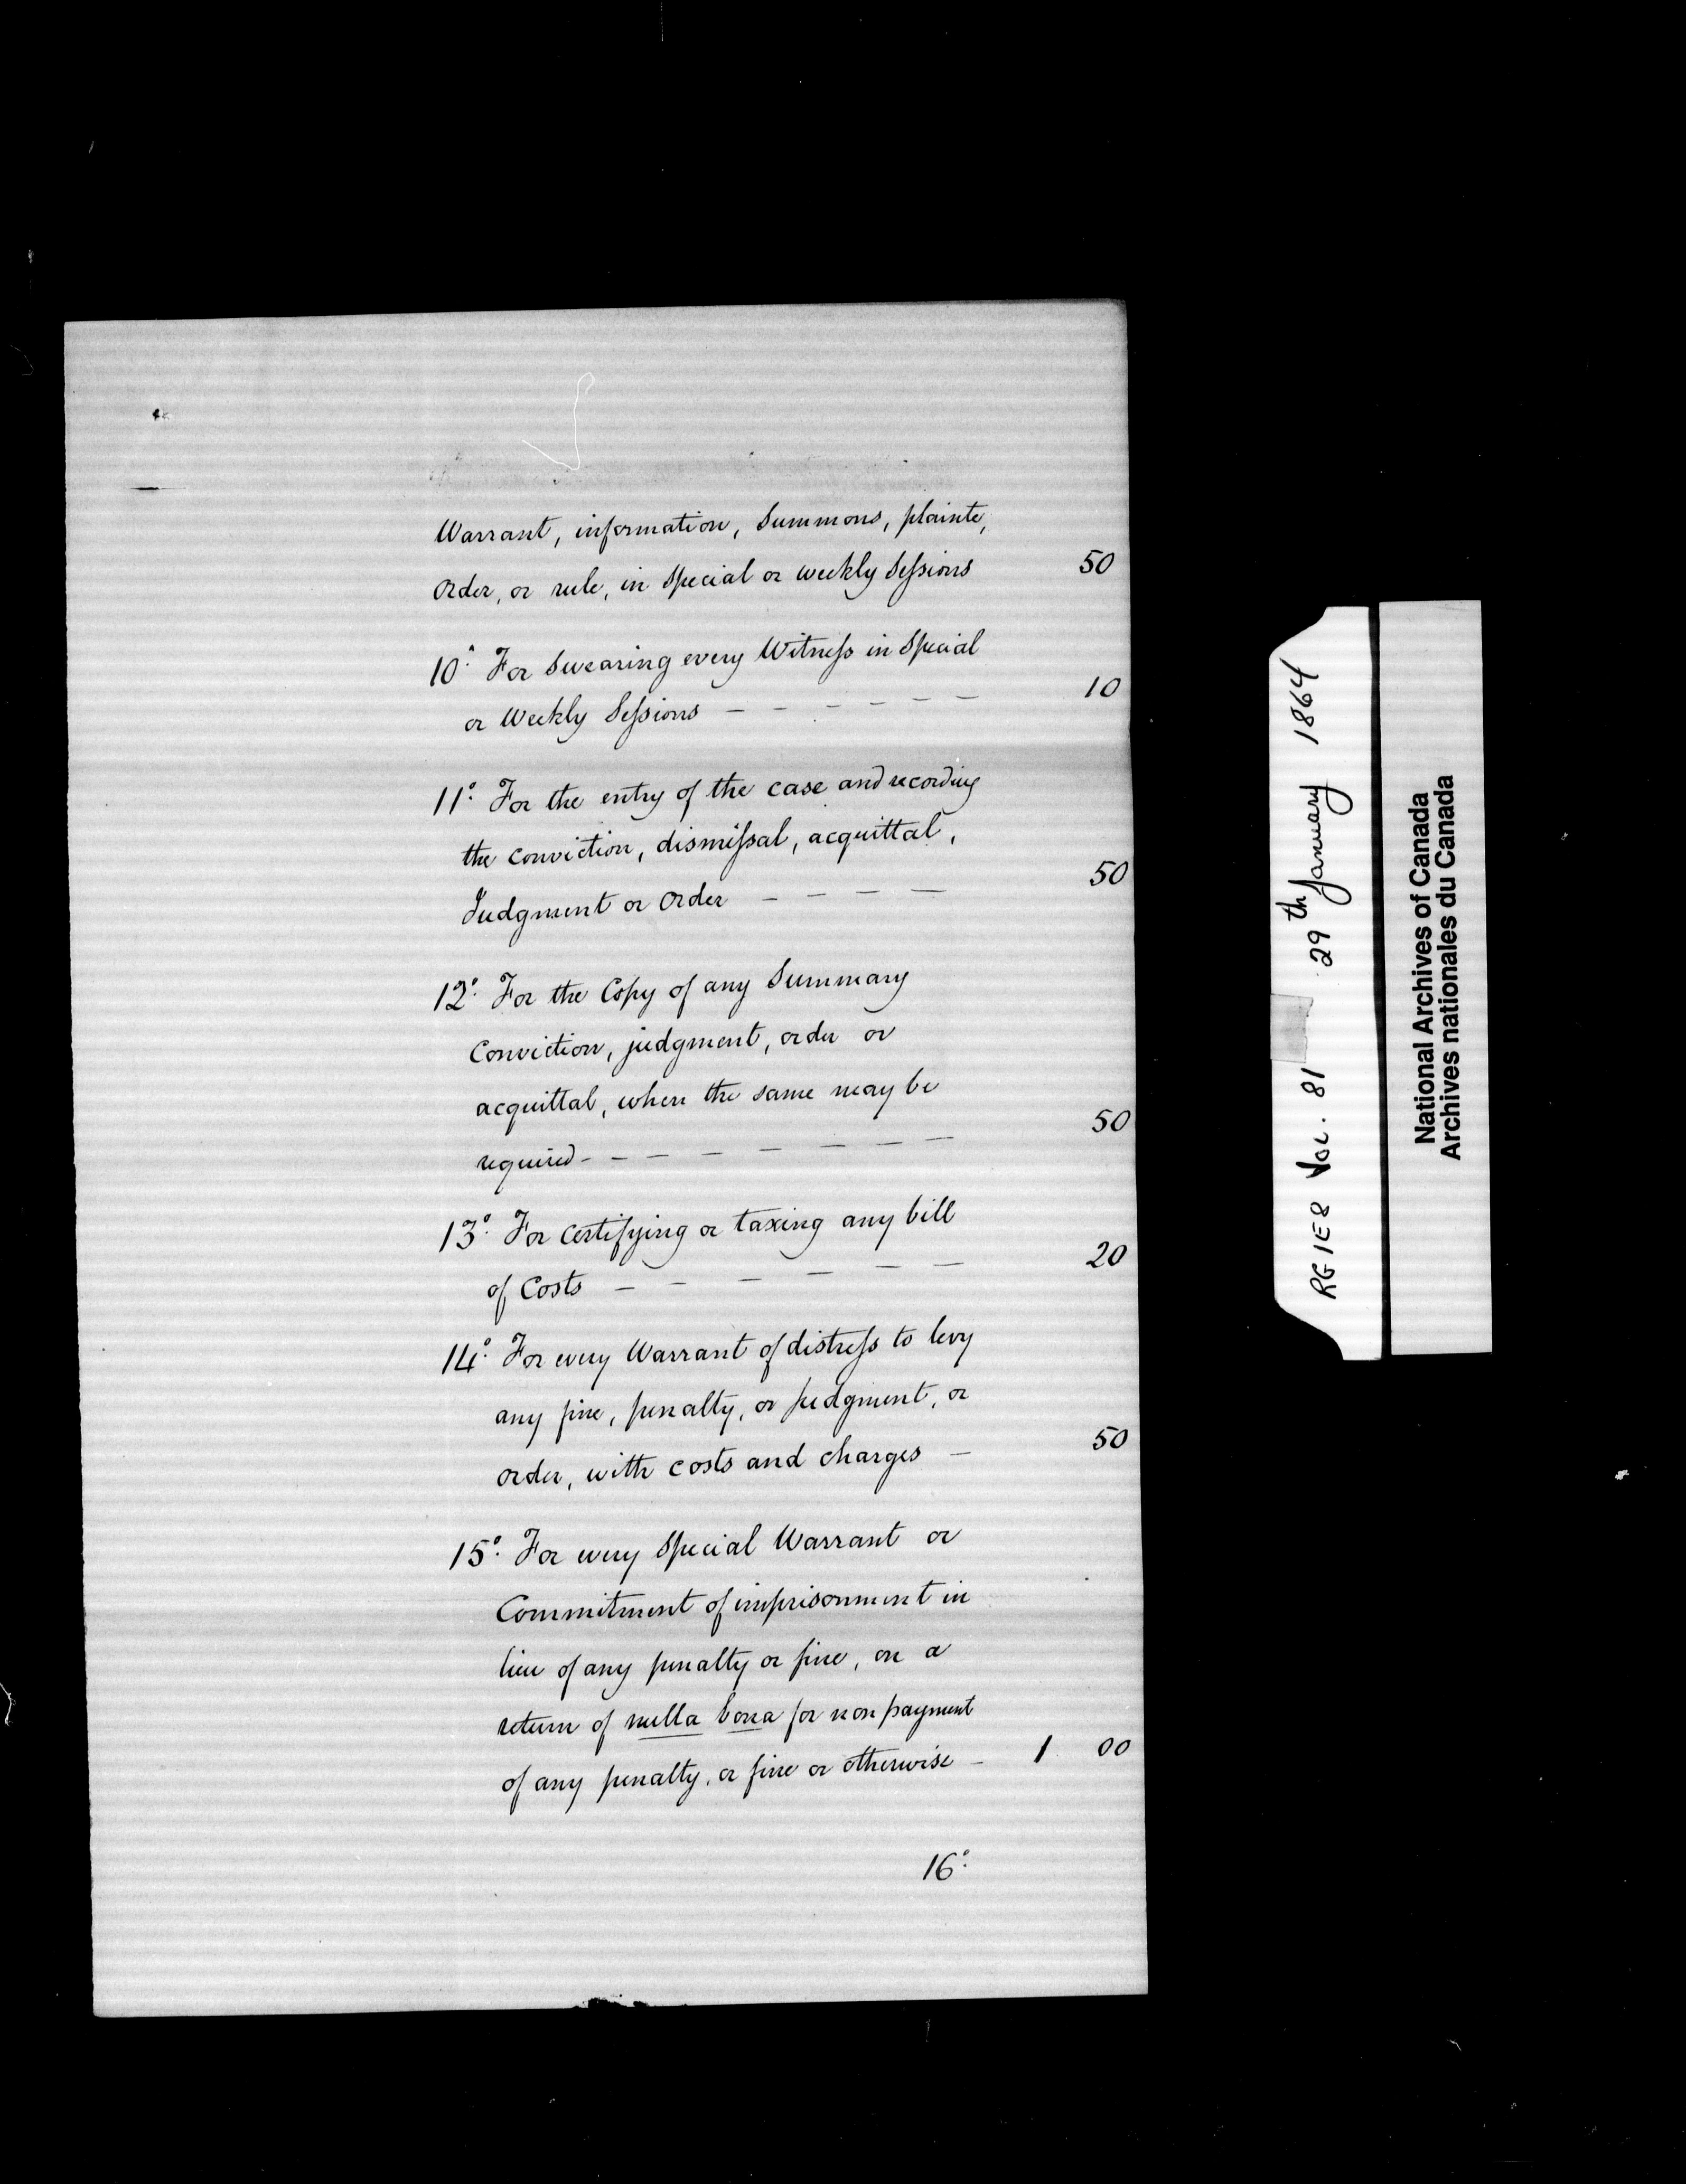 Warrant, information, Summons, plainte,
Order, or rule, in Special or weekly Sessions 50
10° For Swearing every Witness in Special
or Weekly Sessions - - - - - - 10
11° For the entry of the case and recording
the conviction, dismissal, acquittal,
Judgment or Order - - - - 50
12° For the Copy of any Summary
Conviction, judgment, order or
acquittal, where the same may be
required - - - - - - - 50
13° For Certifying or taxing any bill
of Costs - - - - - - 20
14° For every Warrant of distress to levy
any fine, penalty, or Judgment, or
order, with costs and charges - 50
15° For every Special Warrant or
Commitment of imprisonment in
lieu of any penalty or fine, on a
return of nulla bona for non payment
of any penalty, or fine or otherwise - 1 00
16°
RG 1E8 Vol. 81 29th January 1864
National Archives of Canada
Archives nationales du Canada